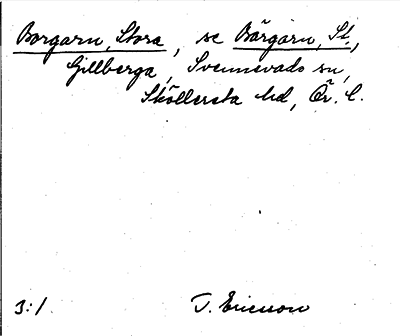 Borgarn, Stora, se Bårgarn, St.,
Gillberga, Svennevads sn,
Sköllersta hd, Ör. l.
3:1 T. Ericsson